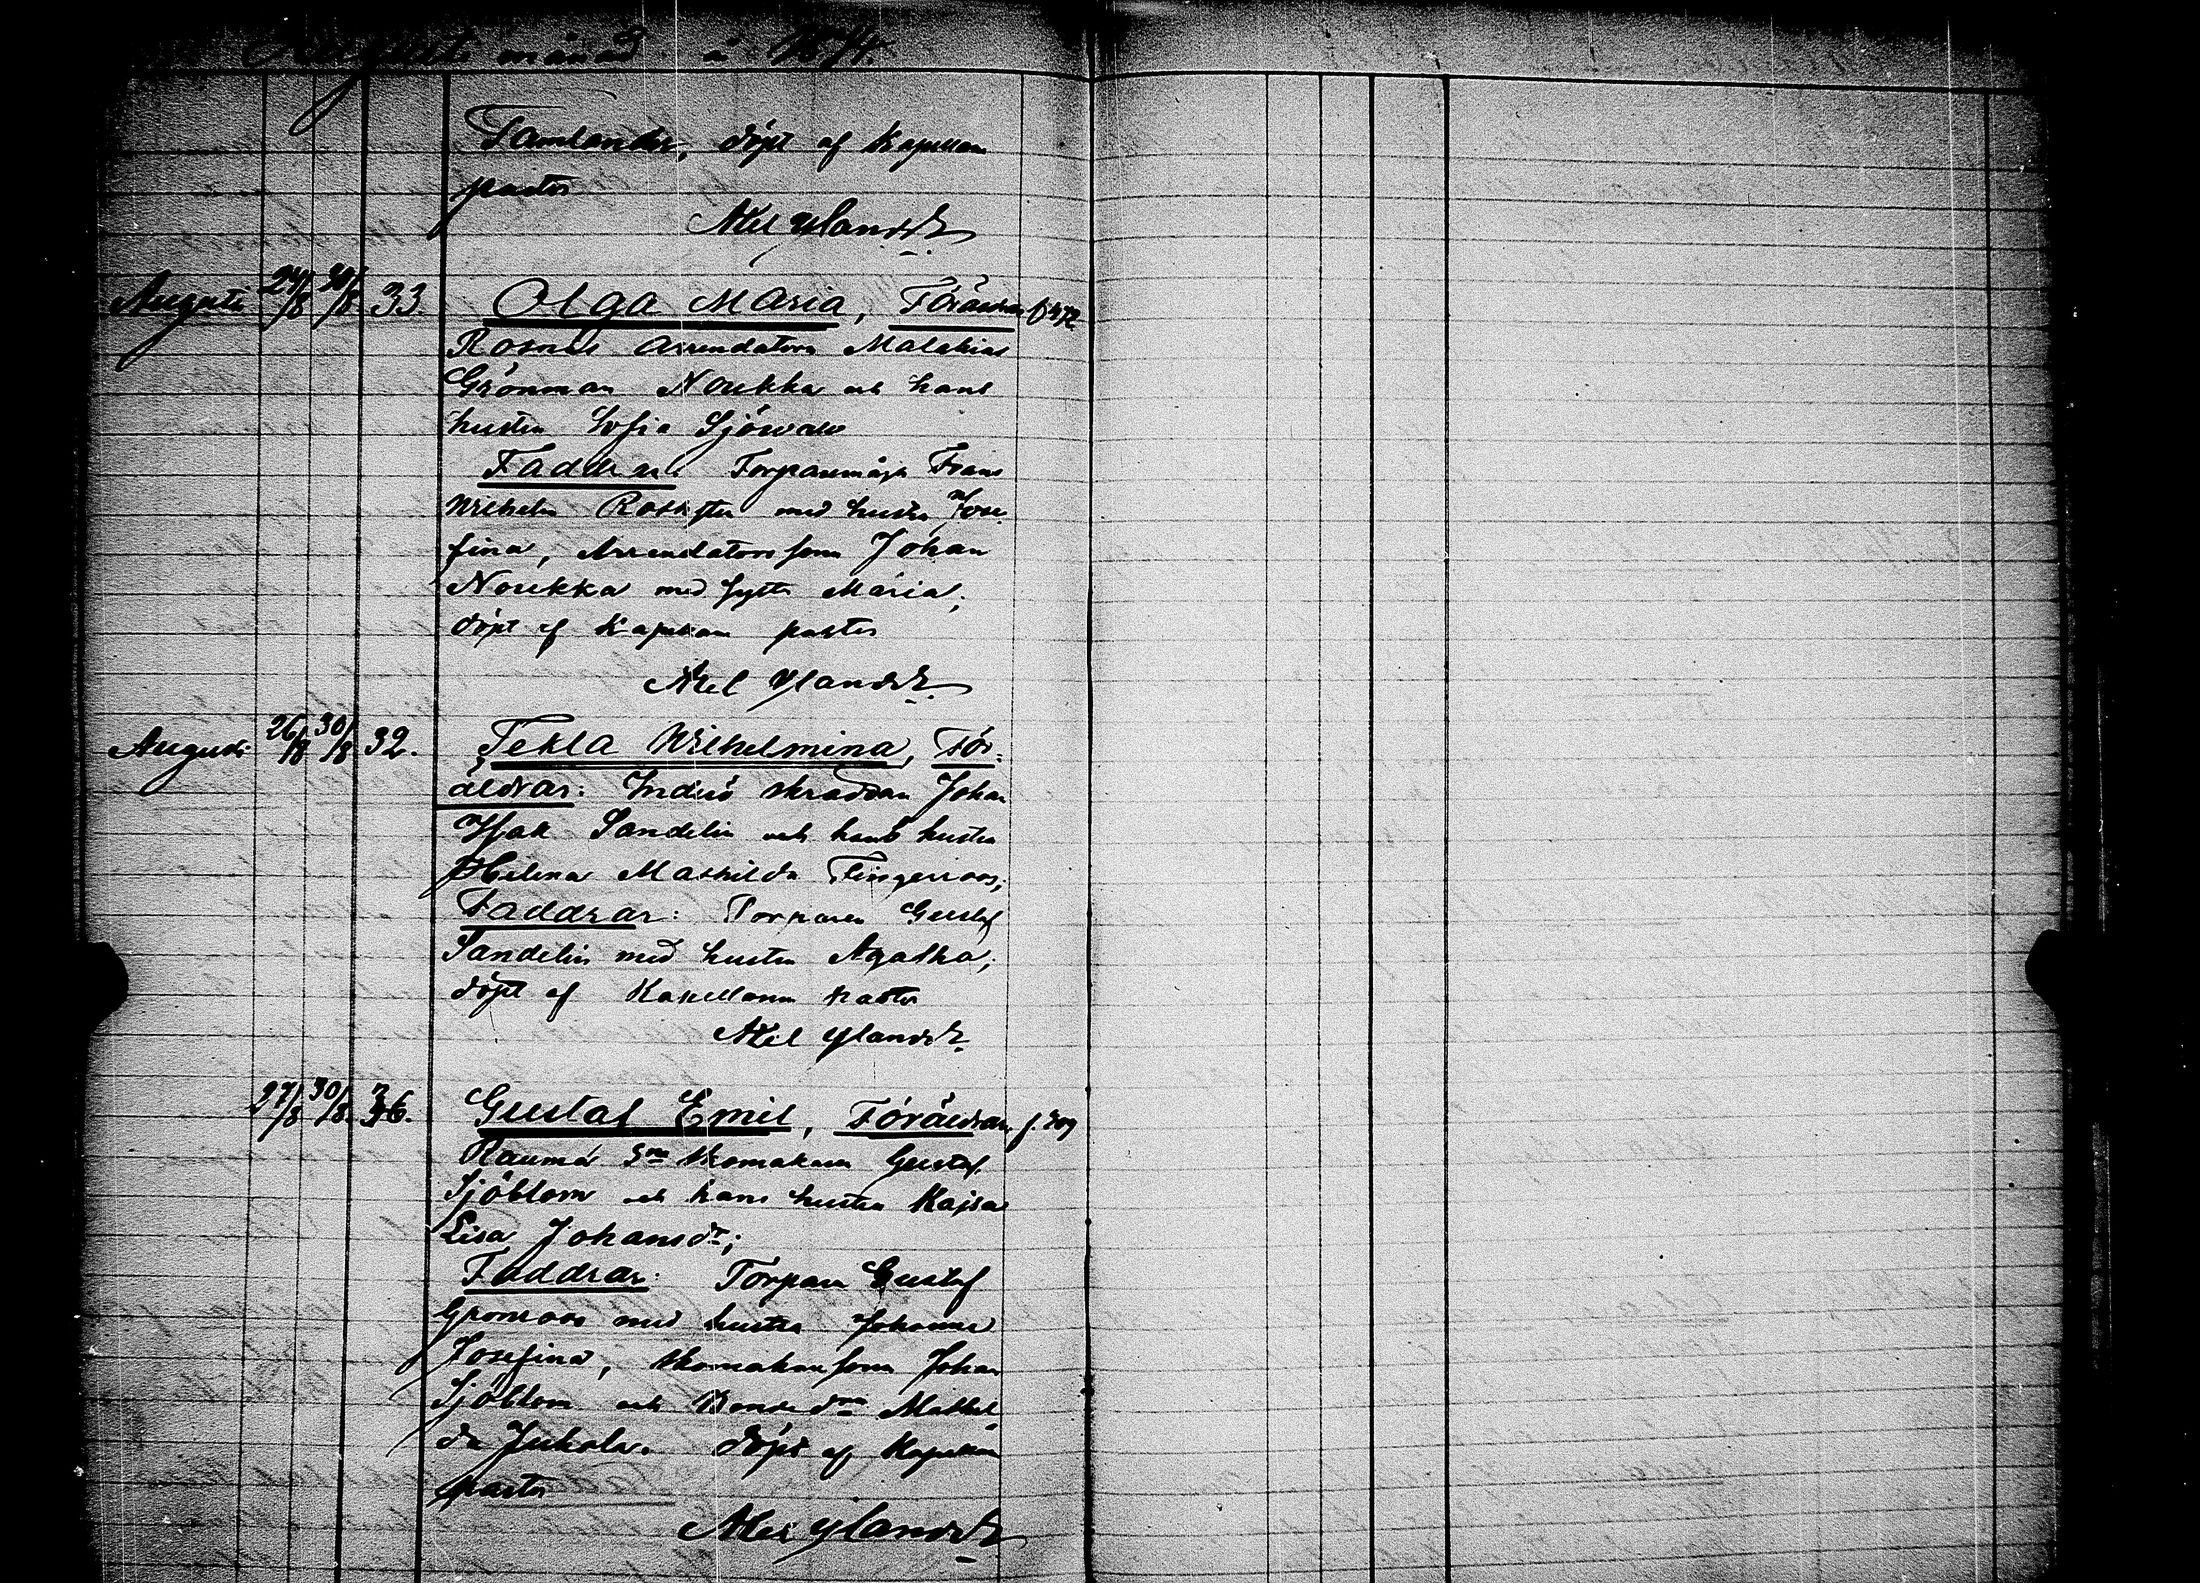 Augusti månad
Tamlander, döpt af Kapellan
pastor
Axel Ylander
Augusti 24/8 30/8 33. Olga Maria, Föräldrar f 472
Rosnäs Arrendatorn Malakias
Grönman Noukka och hans
hustru Sofia Sjövall
Faddrar: Torparemåg Frans
Wilhelm med hustru Jose-
fina, Arrendators sonen Johan
Noukka med syster Maria;
döpt af Kapellan pastor
Axel Ylander
Augusti 26/8 30/8 32. Tekla Wilhelmina, För-
äldrar: Inhus skräddaren Johan
Isak Sandelin och hans hustru
Helena Mathilda Fingerroos;
Faddrar: Torparen Gustaf
Sandelin med hustru Agatha;
döpt af Kapellanen pastor
Axel Ylander
27/8 30/8 36. Gustaf Emil, Föräldrar f. 309
Raumo sn skomakaren Gustaf
Sjöblom och hans hustru Kajsa
Lisa Johansdr;
Faddrar: Torparen Gustaf
Grönroos med hustru Johanna
Josefina, skomakaresonen Johan
Sjöblom och Bonde dn Mathil-
da Juhola. döpt af Kapellan
pastor
Axel Ylander